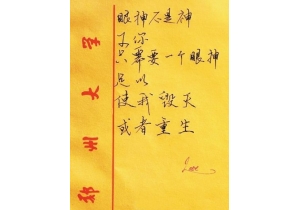 眼神不是神
可你
只需要一个眼神
足以
使我毁灭
或者重生
郑州大学